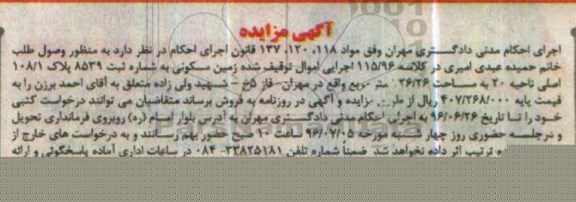 آگهی مزایده
اجرای احکام مدنی دادگستری مهران وفق مواد ۱۱۸، ۱۲۰، ۱۳۷ قانون اجرای احکام در نظر دارد به منظور وصول طلب
خانم حمیده عبدی امیری در کلاسه ۱۱۵/۹۶ اجرایی اموال توقیف شده زمین مسکونی به شماره ثبت ۸۵۳۹ پلاک ۱۰۸/۱
اصلی ناحیه ۲۰ به مساحت ۲۶/۲۶ متر مربع واقع در مهران- فاز شهید ولی زاده متعلق به آقای احمد برزن را به
قیمت پایه ۴۰۷/۲۶۸/۰۰۰ ریال از طریق مزایده و آگهی در روزنامه به فروش برساند متقاضیان می توانند درخواست کتبی
خود را تا تاریخ ۹۶/۰۶/۲۶ به اجرای احکام مدنی دادگستری مهران به آدرس بلوار امام (ره) روبروی فرمانداری تحویل
و در جلسه حضوری روز چهار شنبه مورخه ۹۶/۰۷/۰۵ ساعت ۱۰ صبح حضور بهم رسانند و به درخواست های خارج از
ترتیب اثر داده نخواهد شد ضمناً شماره تلفن ۳۳۸۲۵۱۸۱- ۰۸۴ در ساعات اداری آماده پاسخگوئی و ارائه